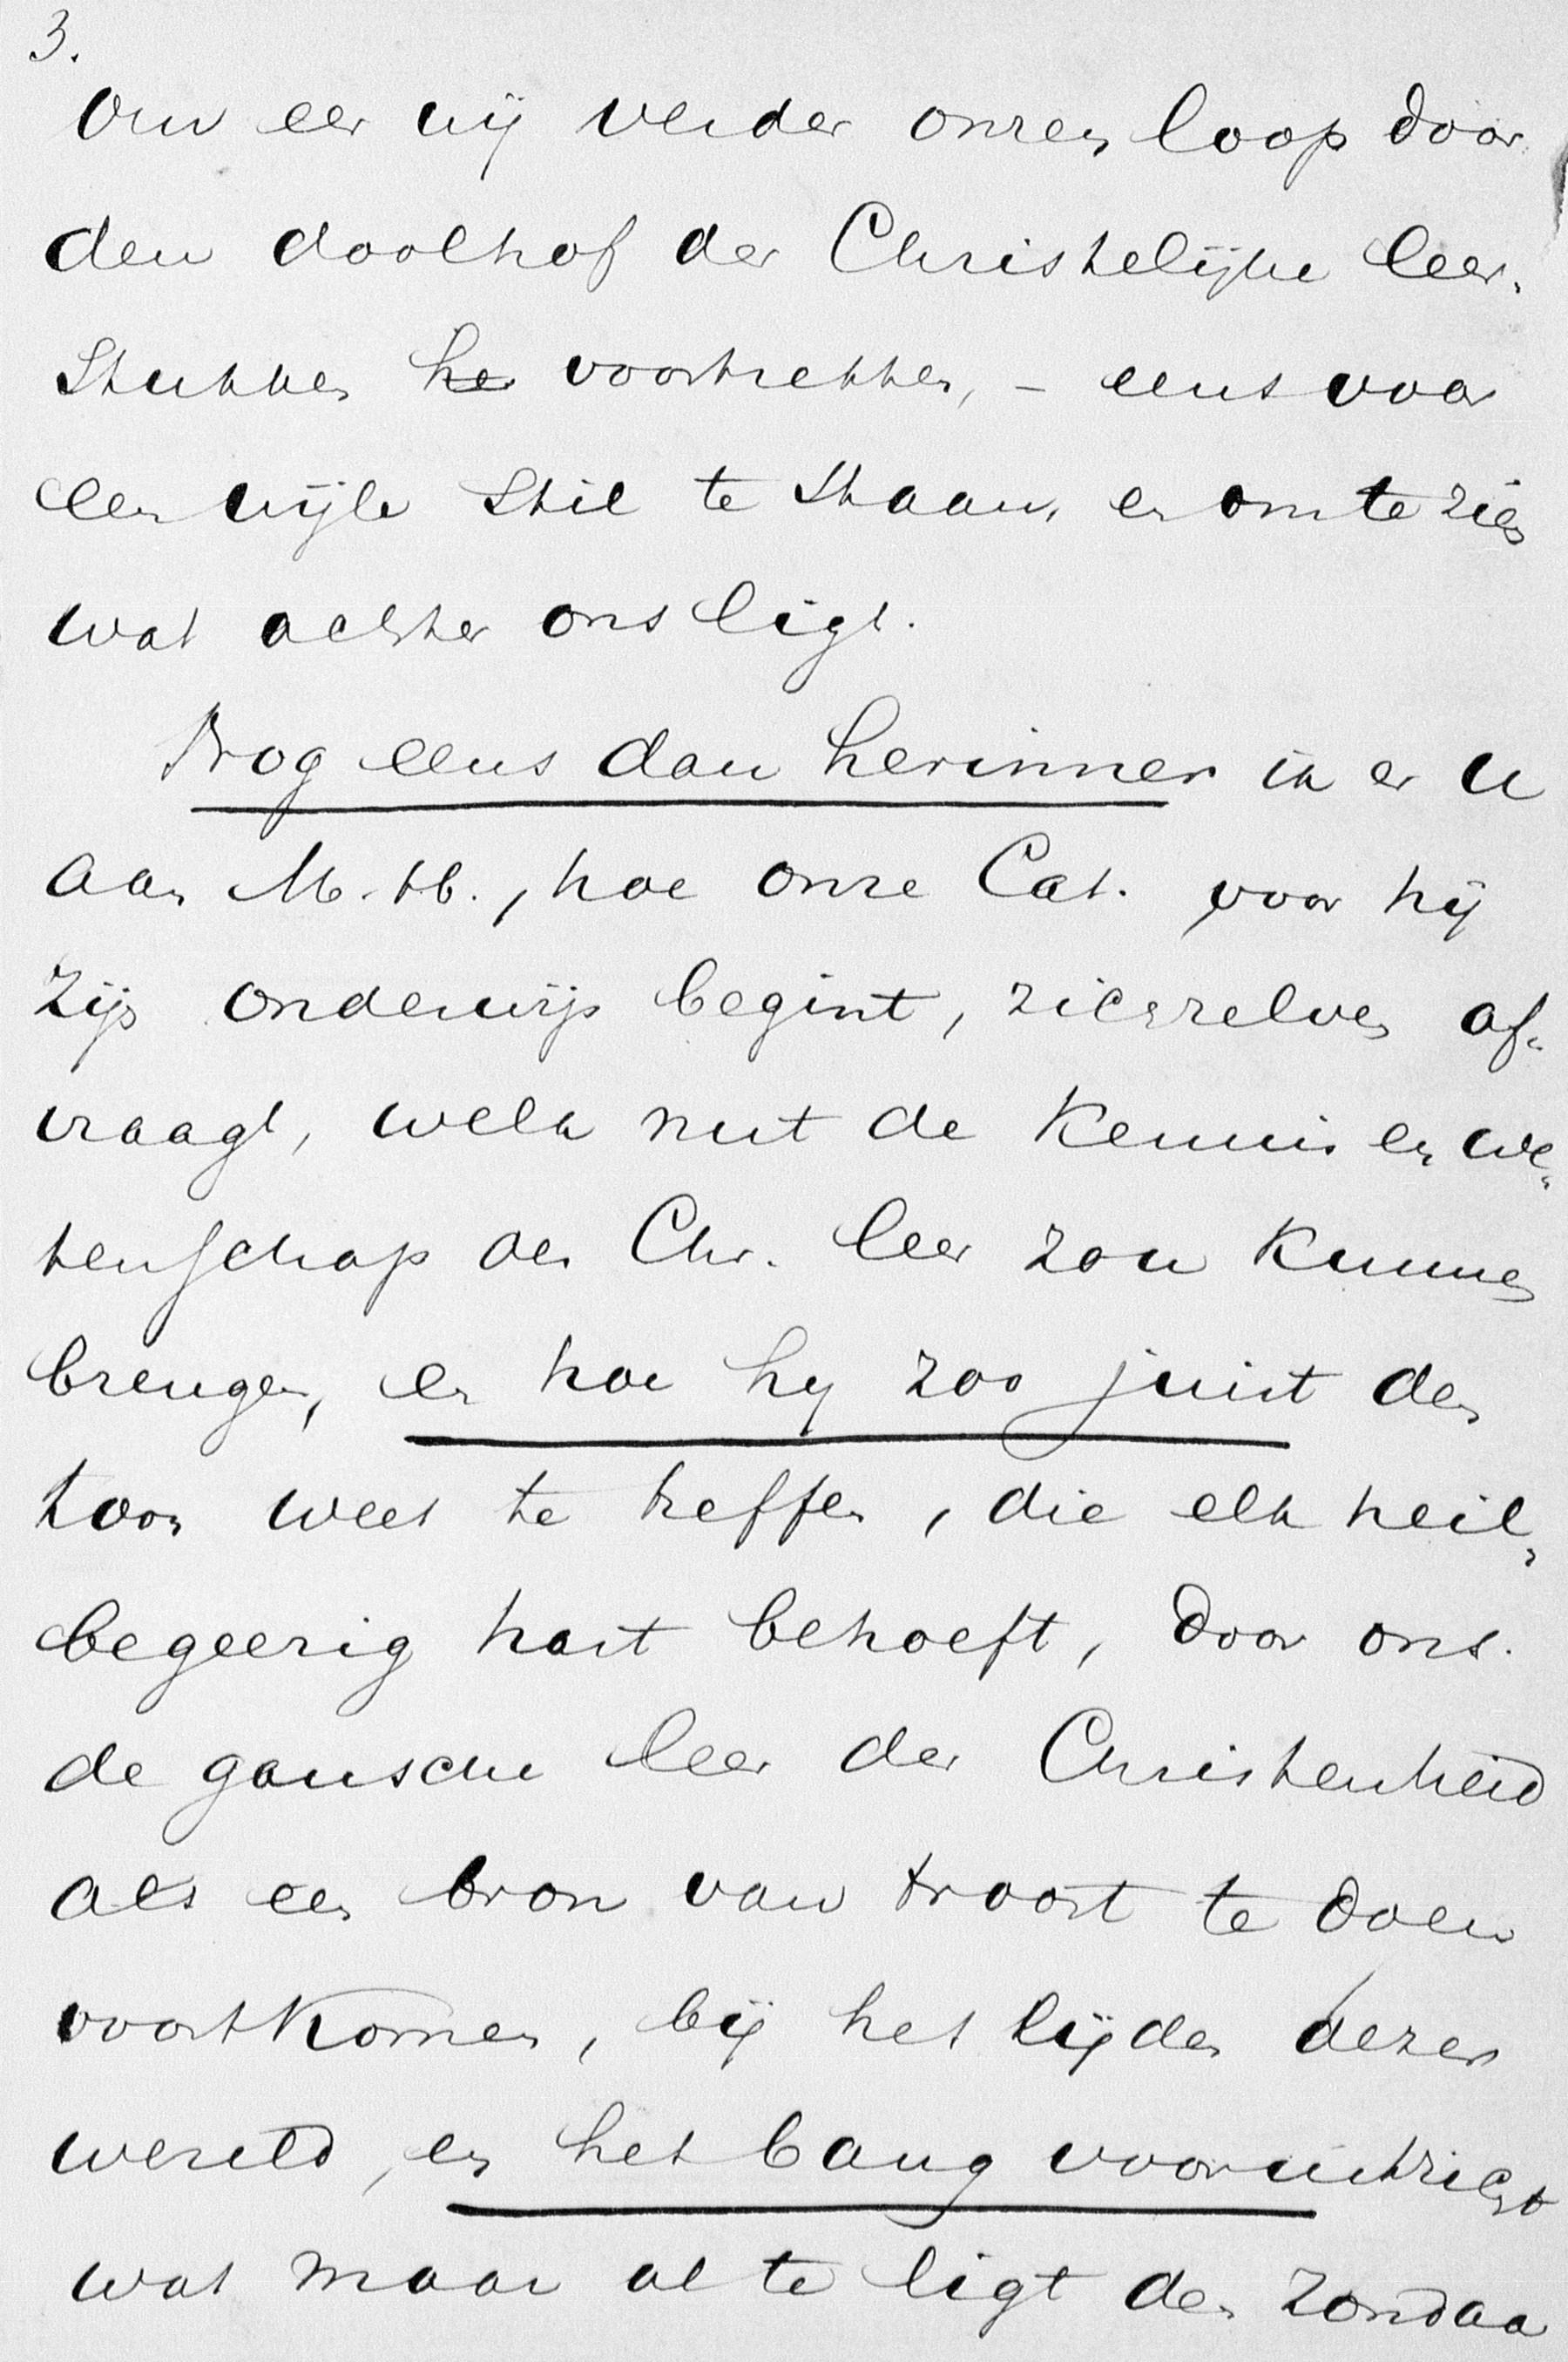 3.
Om eer wij verder onzen loop door
den doolhof der Christelijke leer-
stukken he voortrekken, – eens voor
een wijle stil te staan, en om te zien
wat achter ons ligt.
Nog eens dan herinner ik er u
aan M. H., hoe onze Cat. voor hij
zijn onderwijs begint, zichzelven af-
vraagt, welk nut de kennis en we-
tenschap der Chr. leer zou kunnen
brengen, en hoe hy zoo juist den
toon weet te treffen, die elk heil-
begeerig hart behoeft, door ons
de gansche leer der Christenheid
als een bron van troost te doen
voortkomen, bij het lijden dezer
wereld, en het bang vooruitzicht
wat maar al te ligt den zondaa